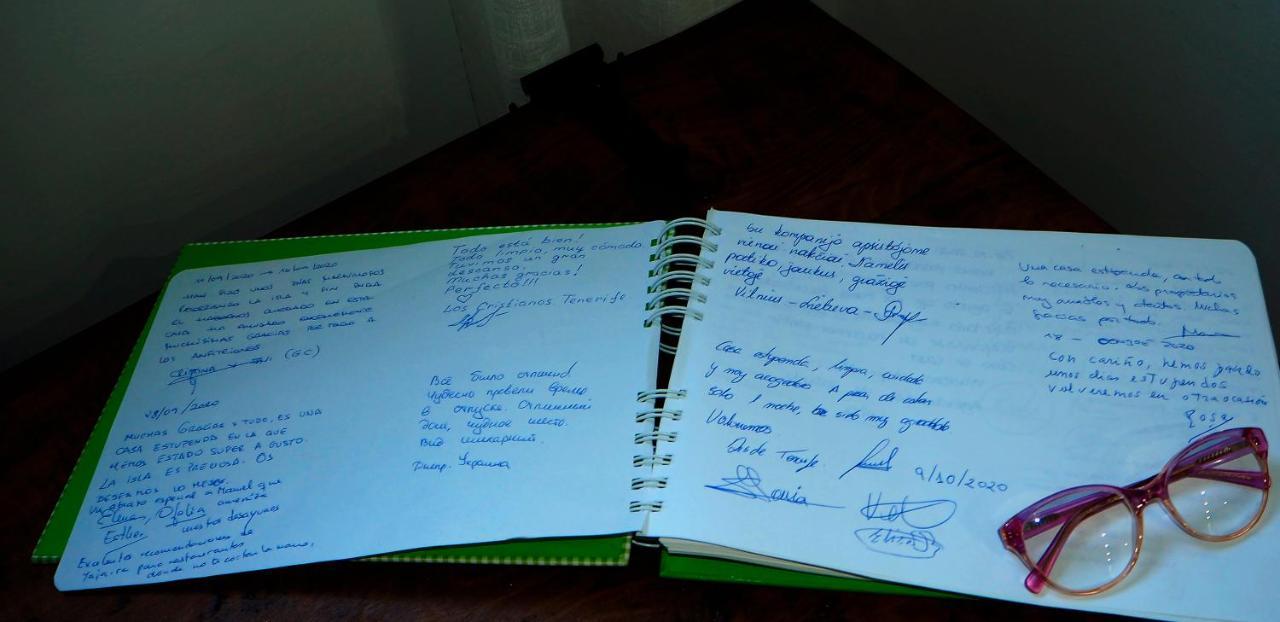 11/09/2020 → 14/09/2020
HAN SIDO UNOS DÍAS
RECORRIENDO LA ISLA Y SIN DUDA
EL HABERNOS QUEDADO EN ESTA
CASA HA
MUCHÍSIMAS GRACIAS POR TODO A
LOS ANFITRIONES.
CRISTINA (GC)
18/09/2020
MUCHAS GRACIAS X TODO, ES UNA
CASA ESTUPENDA EN LA QUE
HEMOS ESTADO SUPER A GUSTO.
LA ISLA ES PRECIOSA. OS
DESEAMOS LO MEJOR.
Un abrazo especial a Manuel que
Elena, Ofelia
Esther nuestros desayunos
Exelentes recomendaciones de
Yajaira para restaurantes
donde no te cortan la mano,
Todo está bien!
Todo limpio, muy cómodo
Tuvimos un gran
descanso.
Muchas gracias!
Perfecto!!!
Los Cristianos Tenerife
Всё было отлично!
Чудесно провели время
в отпуске. Отличный
дом, чудное место.
Вид шикарный.
Днепр. Украина
Su kompanija apsistojome
vienai nakčiai. Namelis
patiko, jaukus, gražioje
vietoje
Vilnius - Lietuva -
Casa estupenda, limpia, cuidada
y muy acogedora. A pesar de estar
solo 1 noche, ha sido muy agradable
Volveremos
Desde Tenerife. 9/10/2020
Sonia
Una casa estupenda, con todo
lo necesario. Los propietarios
muy amables y atentos. Muchas
gracias por todo.
18 - OCTUBRE 2020
Con cariño, hemos pasado
unos dias estupendos
volveremos en otra ocasión
Rosa